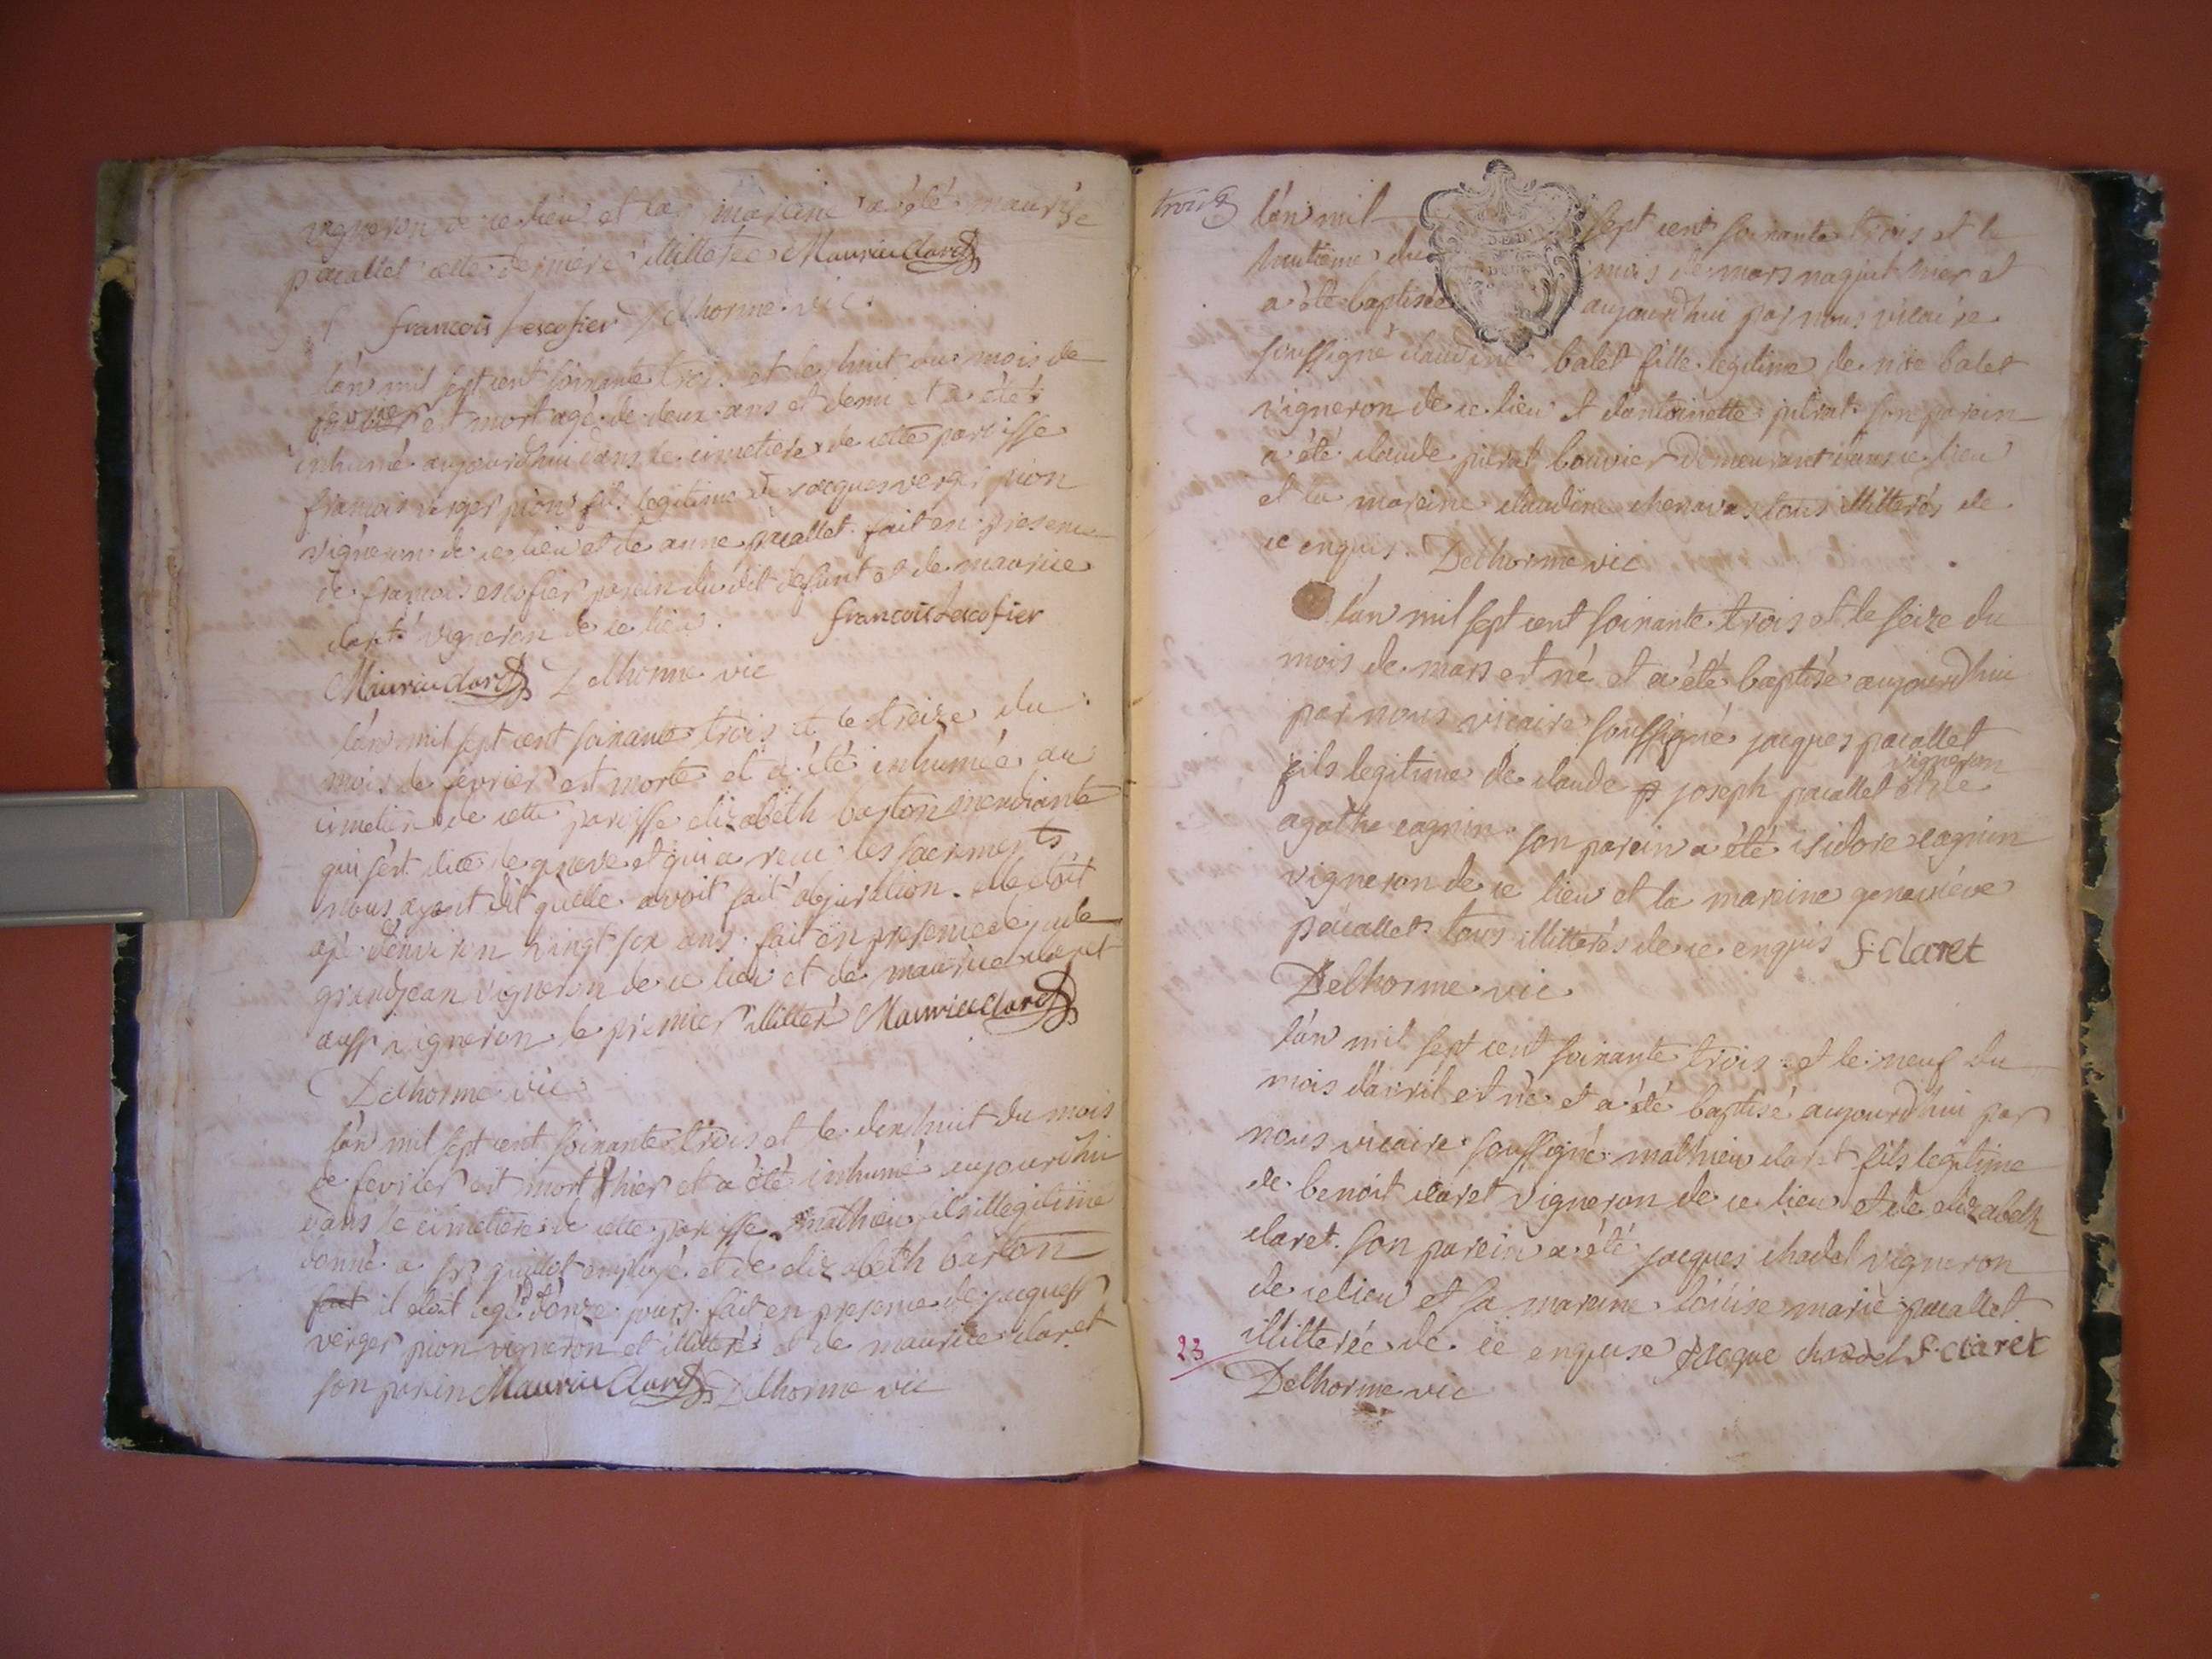 vigneron de ce lieu et la mareine a été maurise
pacallet cette derniere illiterée Maurice Claret
francois Lescofier Delhorme vic.
l'an mil sept cent soixante trois et le huit du mois de
fevrier est mort agé de deux ans et demi et a été
inhumé aujourdhui dans le cimetiere de cette paroisse
francois verger pion fils legitime de jacques verger pion
vigneron de ce lieu et de anne pacallet. fait en presence
de francois escofier parein du dit defunt et de maurice
claret vigneron de ce lieu. francois Lescofier
Maurice Claret Delhorme vic
l'an mil sept cent soixante trois et le treize du
mois de fevrier est morte et a été inhumée au
cimetiere de cette paroisse elizabeth baston mendiante
qui s'est dite de geneve et qui a recu les sacrements
nous ayant dit qu'elle avoit fait abjuration. elle étoit
agé d'environ vingt six ans. fait en presence de
grandjean vigneron de ce lieu et de maurice claret
aussi vigneron le premier illitteré Maurice Claret
Delhorme vic
l'an mil sept cent soixante trois et le dix huit du mois
de fevrier est mort hier et a été inhumé aujourdhui
dans le cimetiere de cette paroisse mathieu fils illegitime
donné a guillot employé et de elizabeth baston
fait il etoit agé d'onze jours. fait en presence de jacques
verger pion vigneron et illitteré et de maurice claret
son parein Maurice Claret Delhorme vic
trois
l'an mil sept cent soixante trois et le
huitieme du mois de mars naquit hier et
a été baptisée aujourdhui par nous vicaire
soussigné claudine balet fille legitime de balet
vigneron de ce lieu et d'antoinette julrat son parein
a été claude julrat bouvier demeurant dans ce lieu
et la mareine claudine chenavas tous illitterés de
ce enquis. Delhorme vic
l'an mil sept cent soixante trois et le seize du
mois de mars est né et a été baptisé aujourdhui
par nous vicaire soussigné jacques pacallet
vigneron
fils legitime de claude p joseph pacallet et de
agathe cagnin son parein a été isidore cagnin
vigneron de ce lieu et la mareine genevieve
pacallet tous illitterés de ce enquis F. Claret
Delhorme vic
l'an mil sept cent soixante trois et le neuf du
mois d'avril est né et a été baptisé aujourdhui par
nous vicaire soussigné mathieu claret fils legitime
de benoit claret vigneron de ce lieu et de elizabeth
claret. son parein a été jacques chadel vigneron
de ce lieu et sa mareine louise marie pacallet
23 illitterée de ce enquise Jacque chadel F. Claret
Delhorme vic